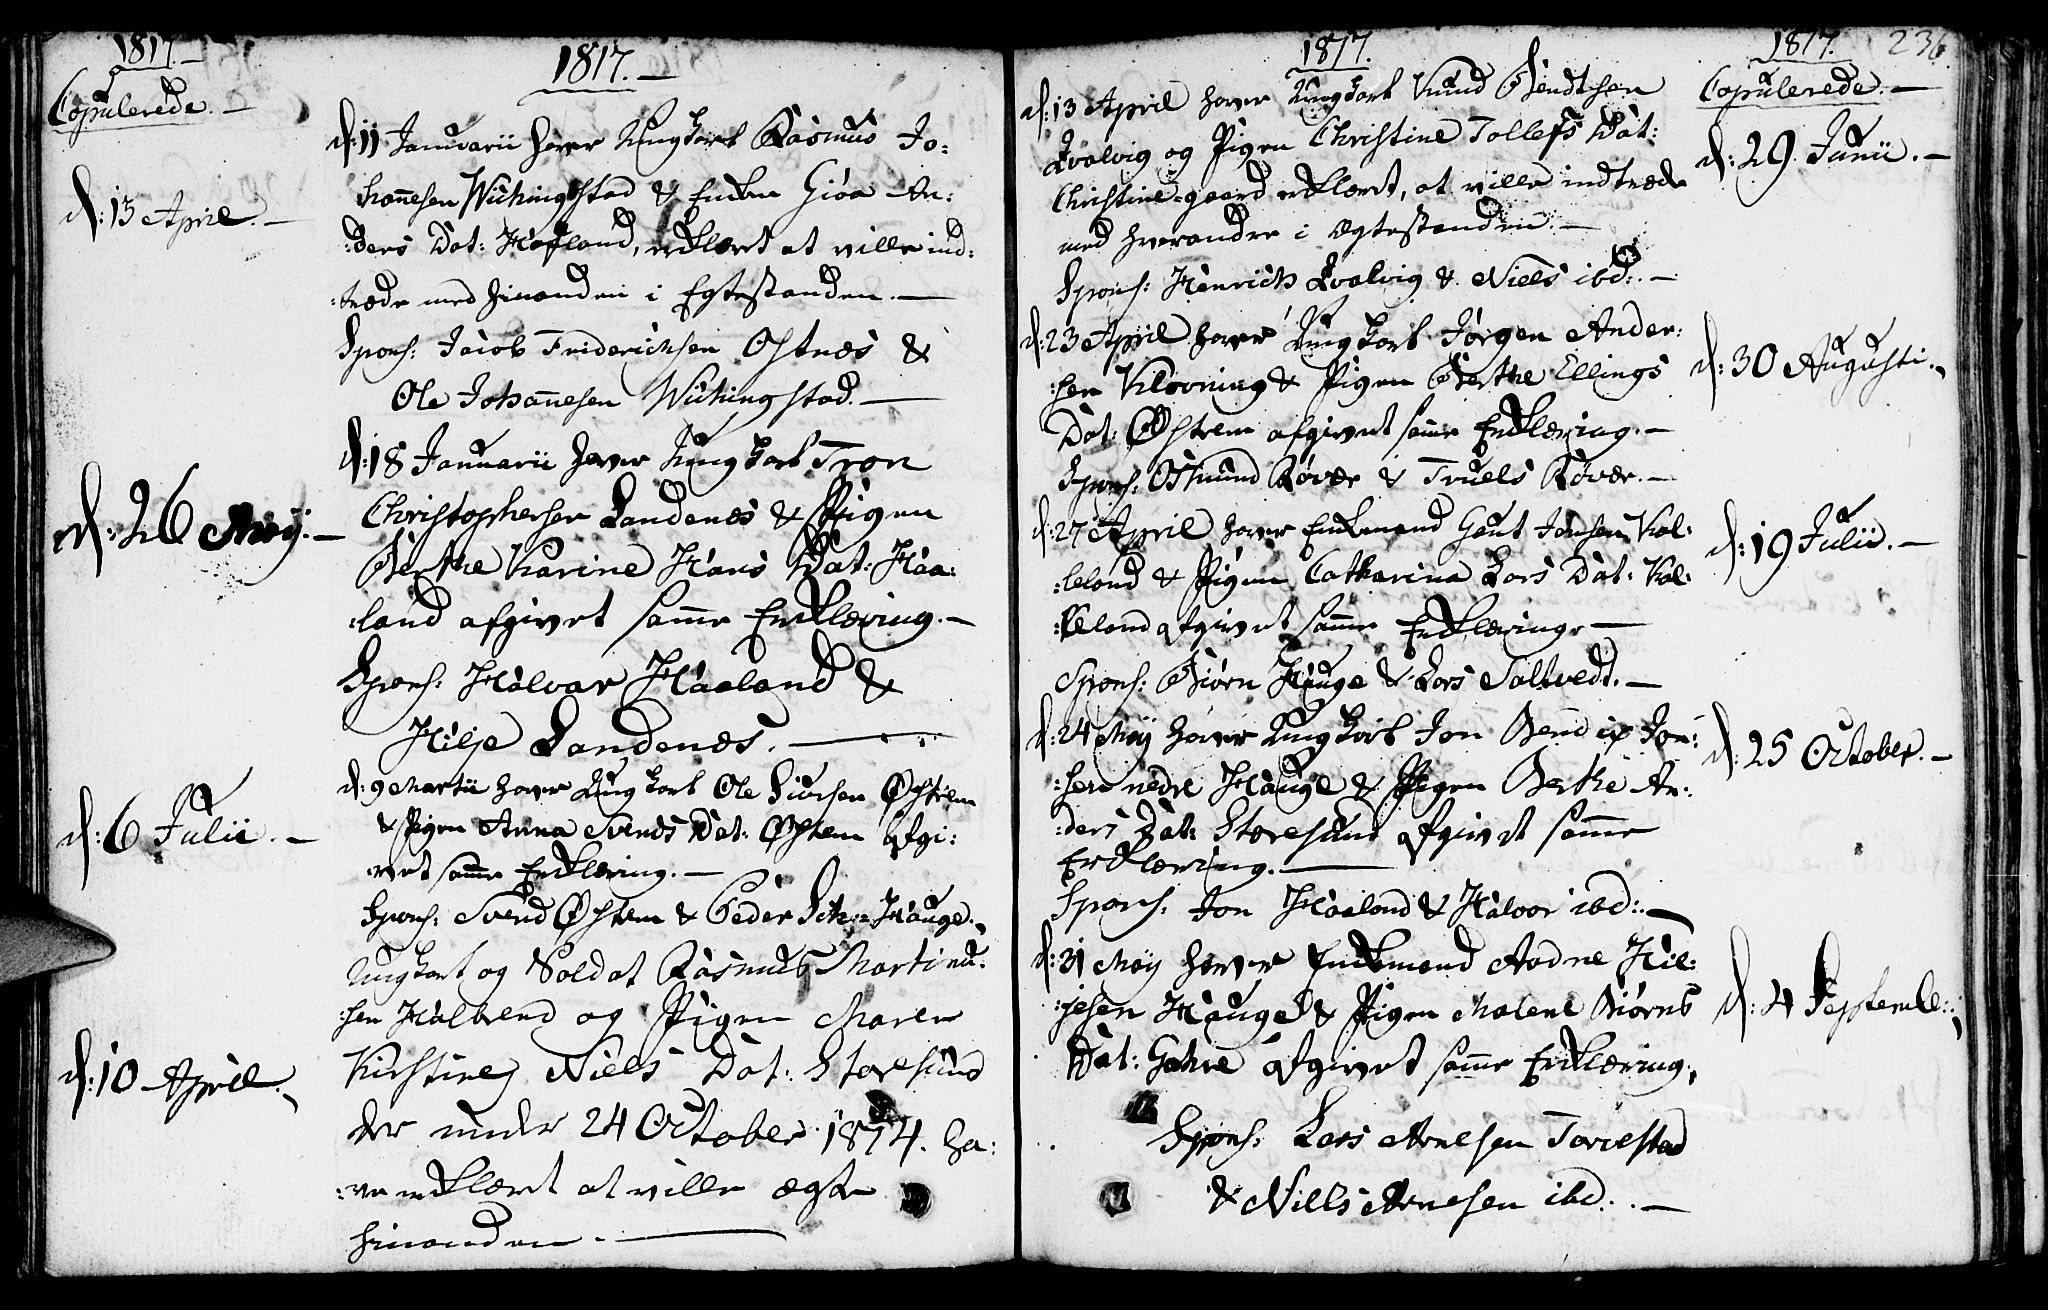 1817.
Copulerede.
d: 13 April.
d: 26 Maij.
d: 6 Julii.
d: 10 April.
1817.
d: 11 Januarii haver Ungkarl Rasmus Jo-
hannesen Wichingstad & Enken Giöa An-
:ders Dat: Hafland, erklæret at ville ind-
:træde med hinanden i Egtestanden.
Spons: Jacob Friderichsen Ostnæs &
Ole Johannesen Wichingstad.
d: 18 Januarii haver Ungkarl Tron
Christophersen Sandenæs & Pigen
Berthe Karine Hans Dat: Haa-
:land afgivet samme Erklæring.
Spons: Halvar Haaland &
Hilje Sandenæs.
d: 9 Martii haver Ungkarl Ole Siursen Østrem
& Pigen Anna Svends Dat: Østem afgi-
:vet samme Erklæring.
Spons: Svend Østem & Peder Hauge.
Ungkarl og Soldat Rasmus Martinu-
:sen og Pigen Maren
Kirstine Niels Dat: Storesund
der under 24 October 1814. ha-
:ve erklæret at ville ægte
hinanden.
1817.
d: 13 April haver Ungkarl Knud Bendtsen
Qvalvig og Pigen Christine Tollefs Dat:
Christine-gaard erklæret, at ville indtræde
med hverandre i Ægtestanden.
Spons: Henrich Qvalvig & Niels ibd:
d: 23 April haver Ungkarl Jørgen Ander-
:sen Kløvning & Pigen Berthe Ellings
Dat: Østrem afgivet samme Erklæring.
Spons: Osmund Røvær & Truels Røvær.
d: 27 April haver Enkemand Gaut Jonsen Kal-
:leland & Pigen Catharina Lars Dat: Kal-
:leland afgivet samme Erklæring.
Spons: Biørn Hauge & Lars Saltvedt.
d: 24 Maij haver Ungkarl Jon Bendix Jon-
:sen nedre Hauge & Pigen Berthe An-
:ders Dat: Storesund afgivet samme
Erklæring.
Spons: Jon Haaland & Halvor ibd:
d: 31 Maij haver Enkemand Aadne Hil-
:jesen Hauge & Pigen Malene Biørns
Dat: afgivet samme Erklæring,
Spons: Lars Arnesen Torvestad
& Nills Arnesen ibd.
1817. 236.
Copulerede.
d: 29 Junii.
d: 30 Augusti.
d: 19 Julii.
d: 25 October.
d: 4 Septembr: